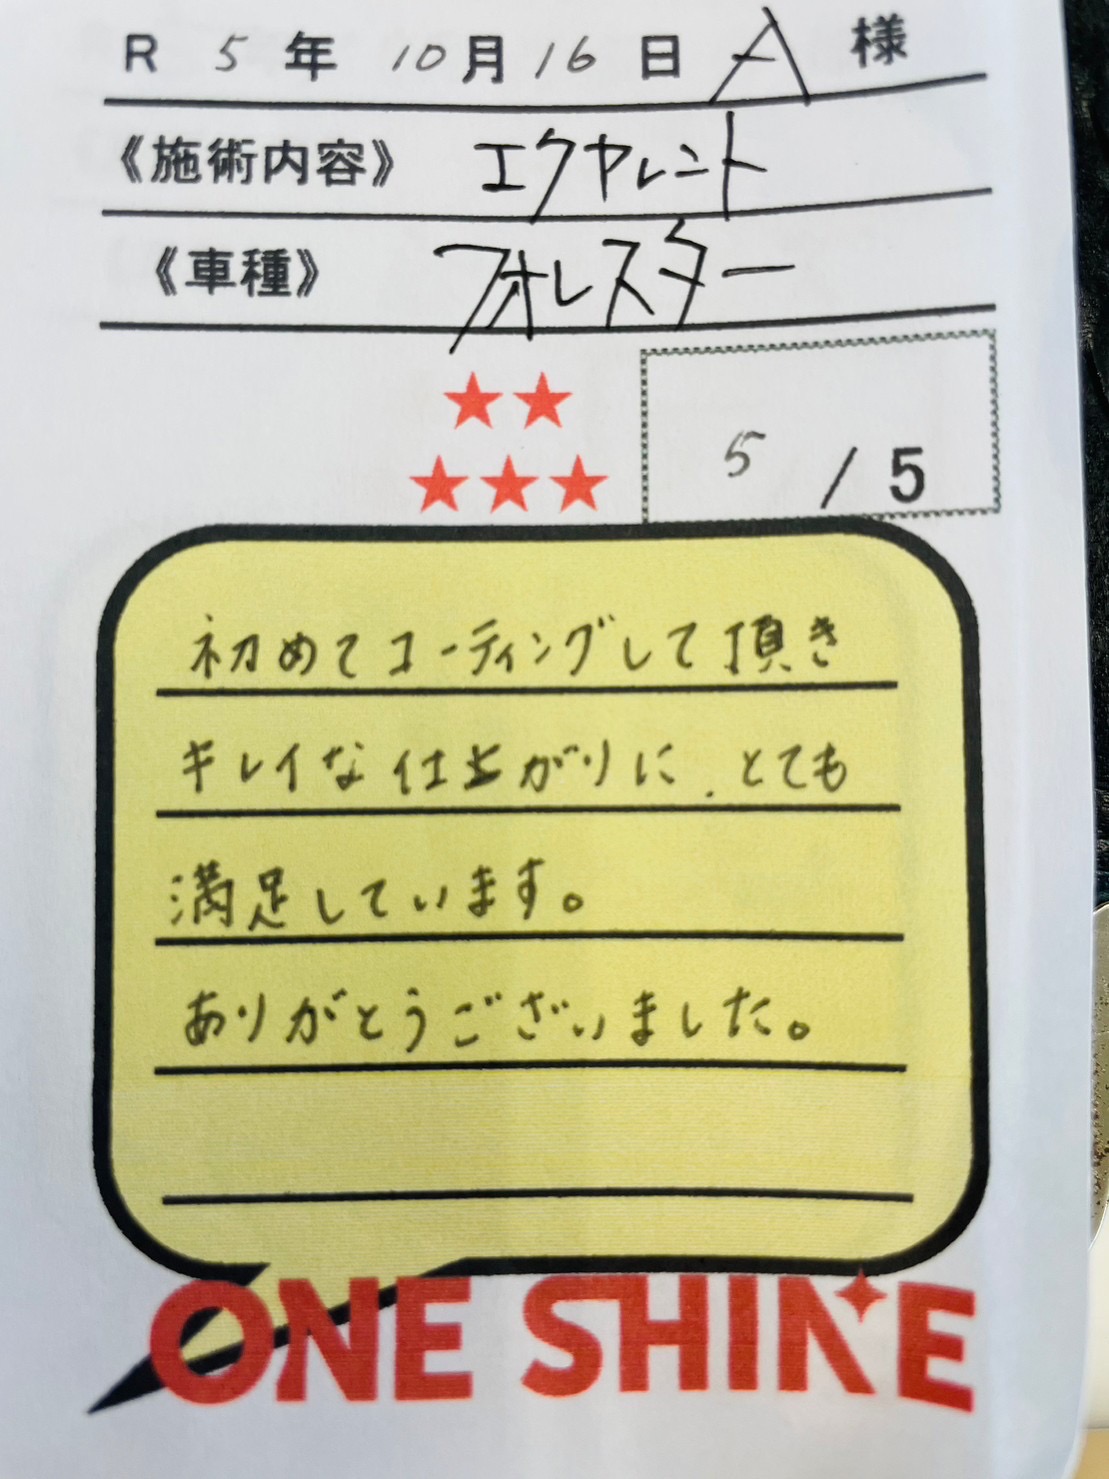 R 5 年 10 月 16 日 A 様
《施術内容》 エクヤレント
《車種》 フォレスター
★★
★★★
5 / 5
初めてコーティングして頂き
キレイな仕上がりに、とても
満足しています。
ありがとうございました。
ONE SHINE